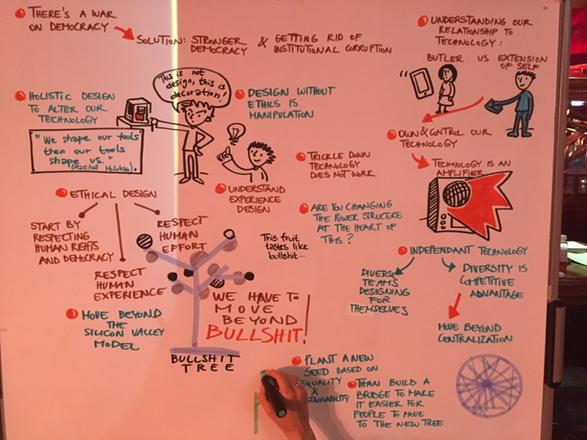 THERE'S A WAR
ON DEMOCRACY
SOLUTION: STRONGER
DEMOCRACY & GETTING RID OF
INSTITUTIONAL CORRUPTION
UNDERSTANDING OUR
RELATIONSHIP TO
TECHNOLOGY:
BUTLER VS EXTENSION
OF SELF
HOLISTIC DESIGN
TO ALTER OUR
TECHNOLOGY
"We shape our tools
then our tools
shape us."
This is not
design, this is
decoration!
DESIGN WITHOUT
ETHICS IS
MANIPULATION
OWN & CONTROL OUR
TECHNOLOGY
TECHNOLOGY IS AN
AMPLIFIER
TRICKLE DOWN
TECHNOLOGY
DOES NOT WORK
UNDERSTAND
EXPERIENCE
DESIGN
ETHICAL DESIGN
START BY
RESPECTING
HUMAN RIGHTS
AND DEMOCRACY
RESPECT
HUMAN
EFFORT
RESPECT
HUMAN
EXPERIENCE
ARE YOU CHANGING
THE POWER STRUCTURE
AT THE HEART OF
THIS?
This fruit
tastes like
bullshit...
INDEPENDANT TECHNOLOGY
DIVERSE
TEAMS
DESIGNING
FOR
THEMSELVES
DIVERSITY IS
COMPETITIVE
ADVANTAGE
MOVE BEYOND
CENTRALIZATION
MOVE BEYOND
THE
SILICON VALLEY
MODEL
WE HAVE TO
MOVE
BEYOND
BULLSHIT!
BULLSHIT
TREE
PLANT A NEW
SEED BASED ON
EQUALITY
&
THAN BUILD A
BRIDGE TO MAKE
IT EASIER FOR
PEOPLE TO MOVE
TO THE NEW TREE